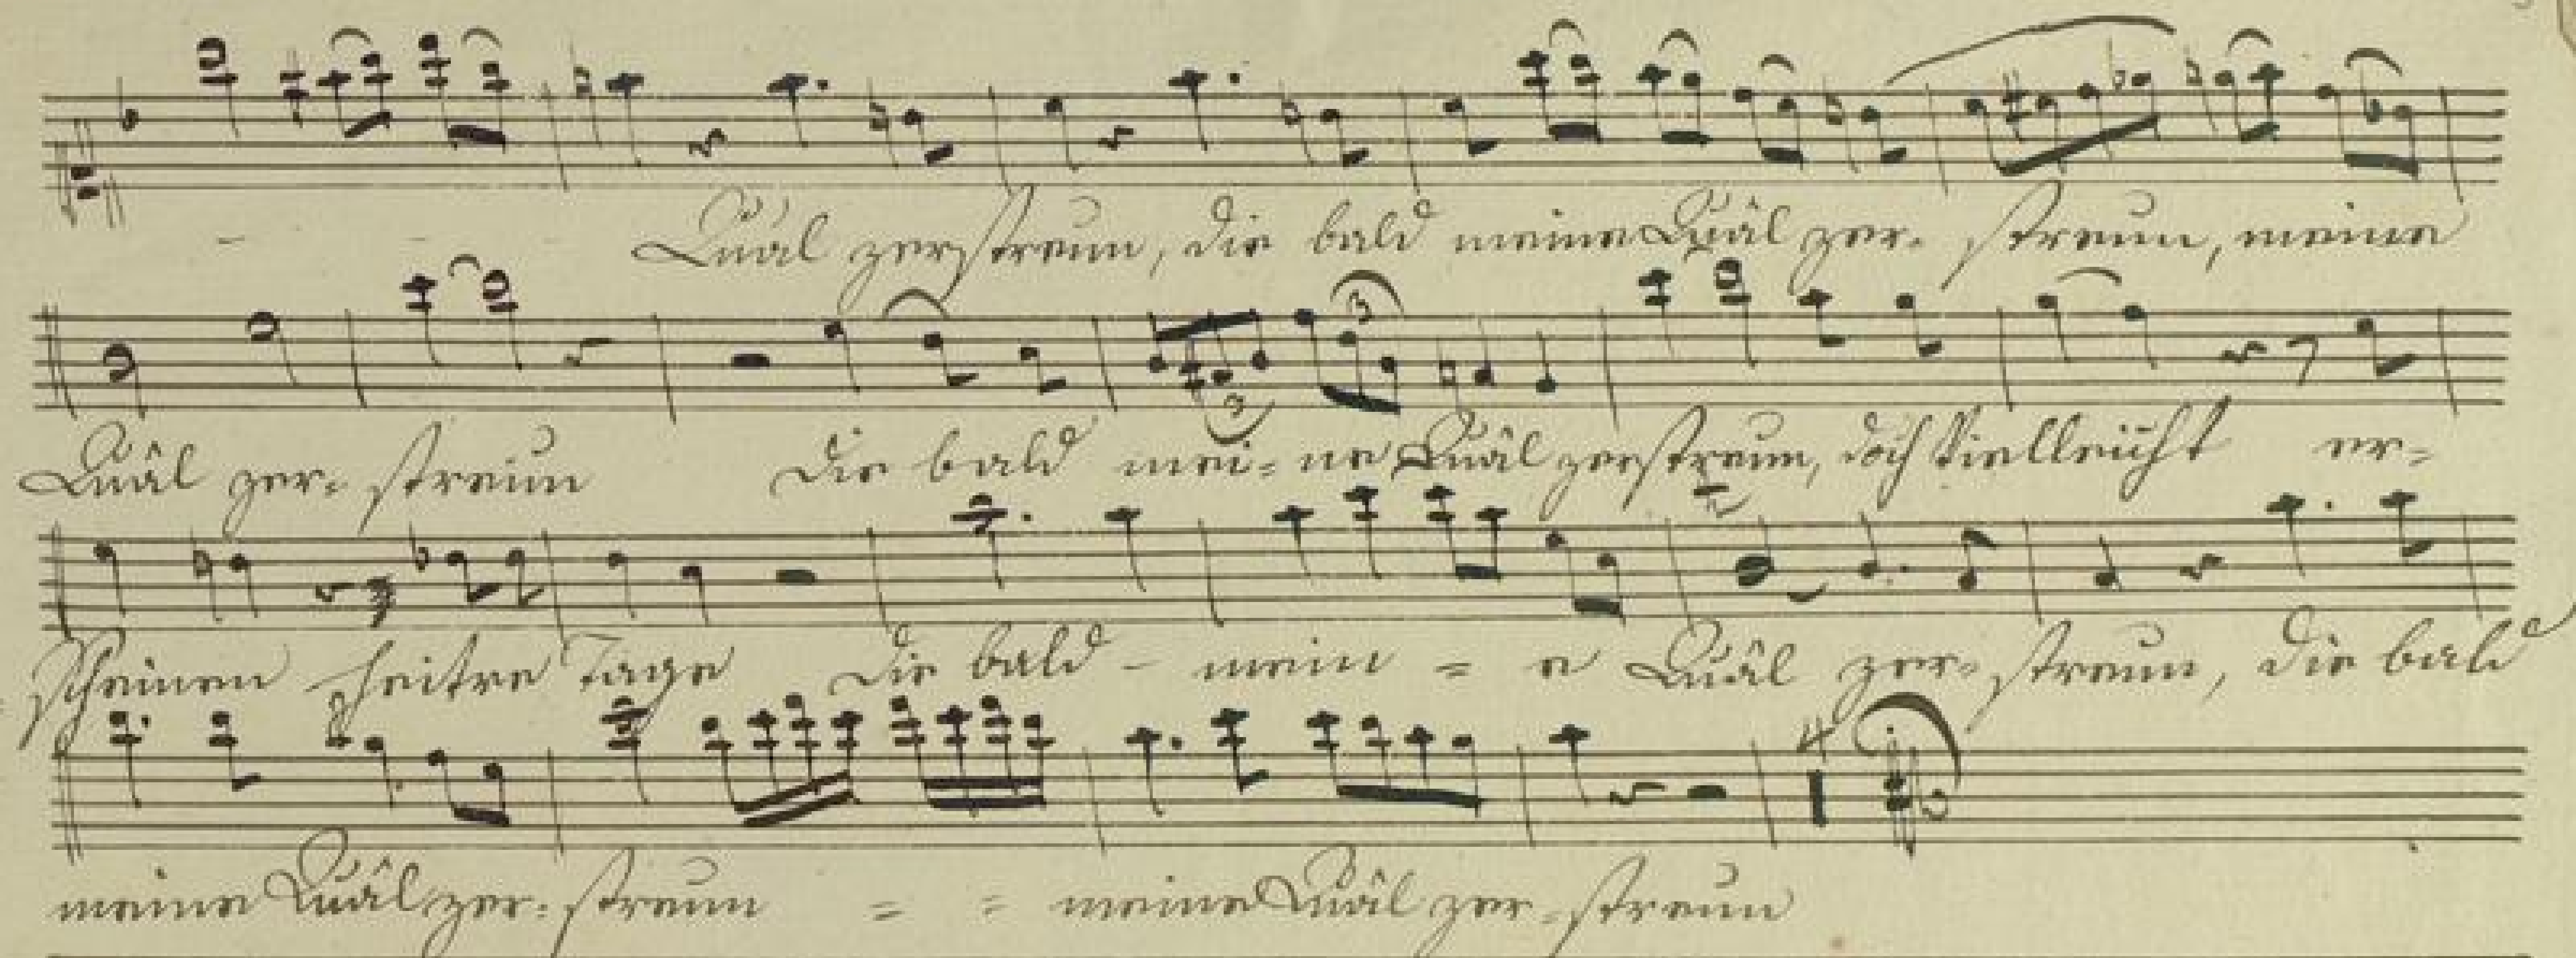 Quaal zerstreun, die bald meine Quaal zer- streun, meine
Quaal zer- streun die bald mei- ne Quaal zerstreun, doch vielleicht er-
scheinen heitre Tage die bald - mein = e Quaal zer- streun, die bald
4
meine Quaal zer- streun = = meine Quaal zer- streun